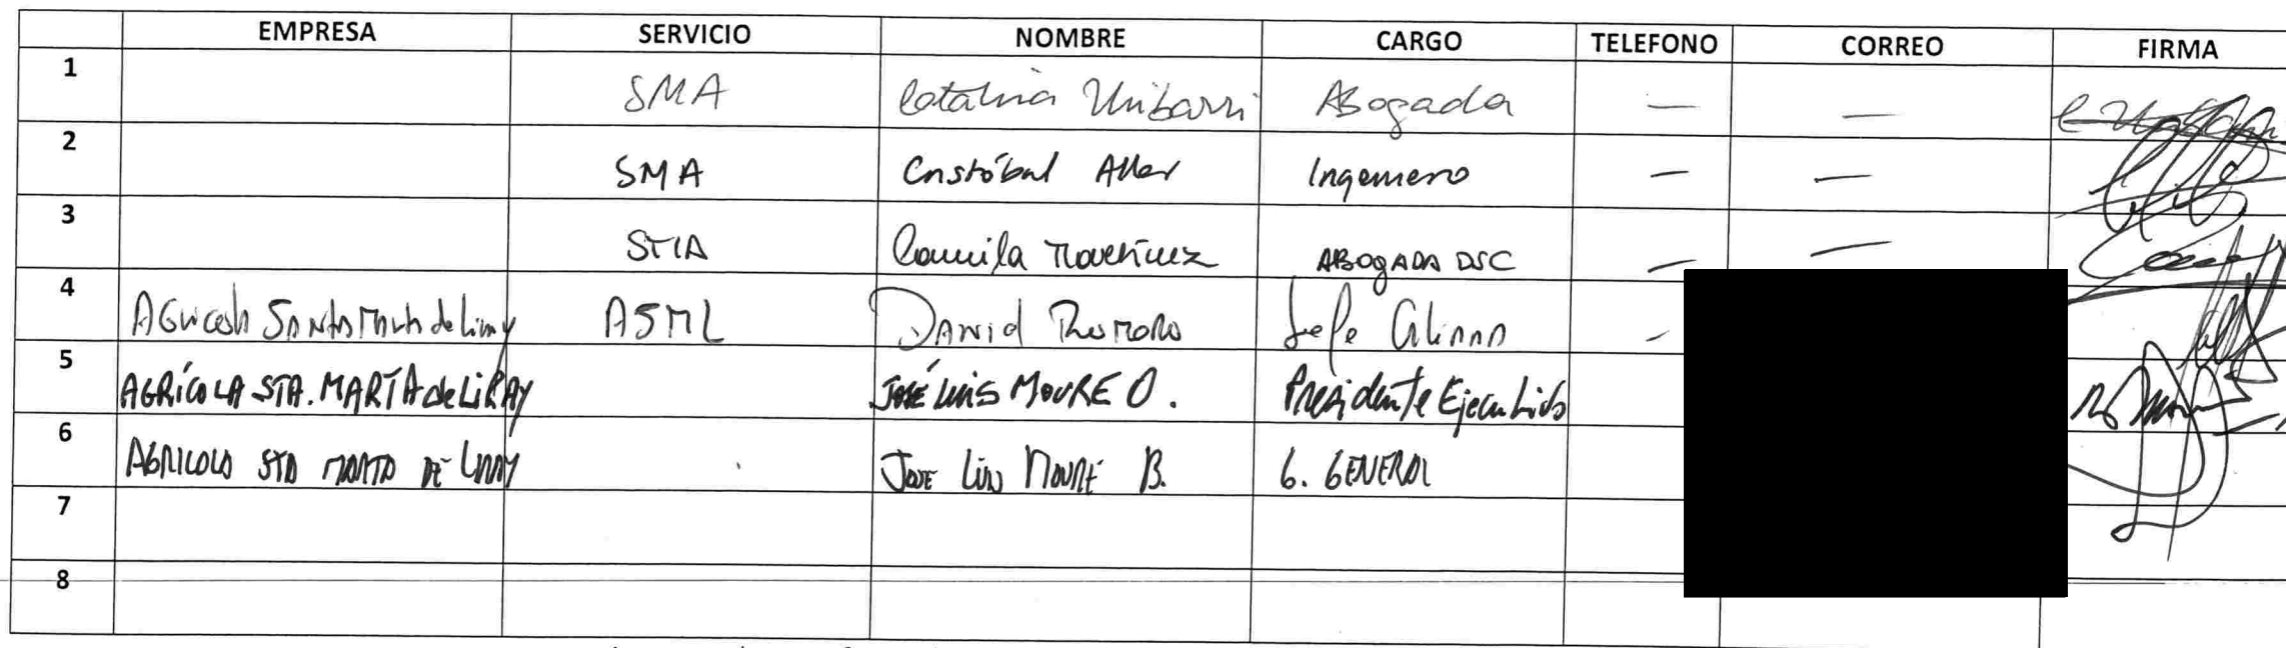 EMPRESA SERVICIO NOMBRE CARGO TELEFONO CORREO FIRMA
1 SMA Catalina Uribarri Abogada — —
2 SMA Cristóbal Aller Ingeniero — —
3 SMA Camila Martínez ABOGADA DSC — —
4 Agricola Santa Marta de Liray ASML David Romero Jefe -
5 AGRÍCOLA STA. MARTA de LIRAY JOSÉ LUIS MOURE O. Presidente Ejecutivo
6 AGRICOLA STA MARTA DE LIRAY JOSE LUIS MOURE B. G. GENERAL
7
8